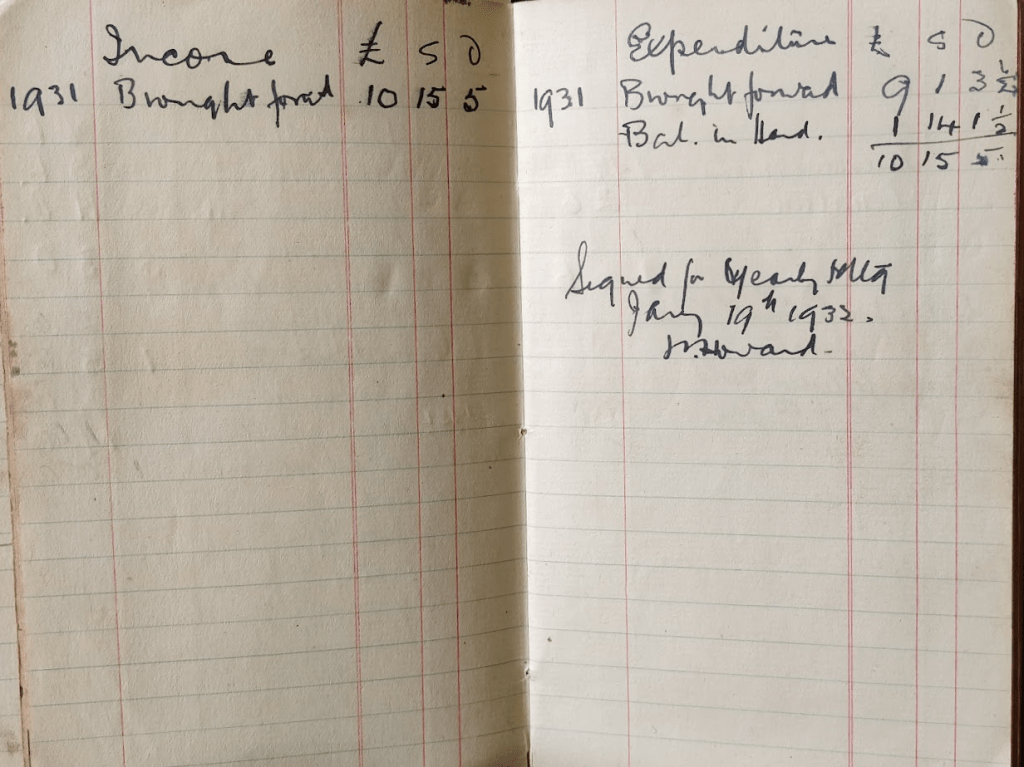 Income £ S D
1931 Brought forwd 10 15 5
Expenditure £ S D
1931 Brought forward 9 1 3 1/2
Bal. in Hand. 1 14 1 1/2
10 15 5
Signed for Yearly Mtg
Jany 19th 1932.
Howard